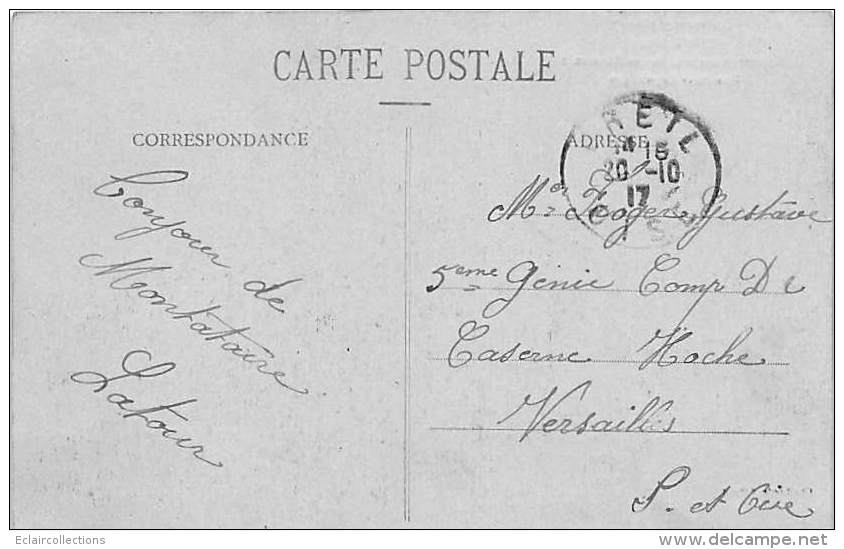 CARTE POSTALE
CORRESPONDANCE
ADRESSE
CREIL
15
20-10
17
OISE
Bonjour de
Montataire
Latour
Mr Gustave
5eme Génie Comp De
Caserne Hoche
Versailles
S. et Oise
Eclaircollections
www.delcampe.net